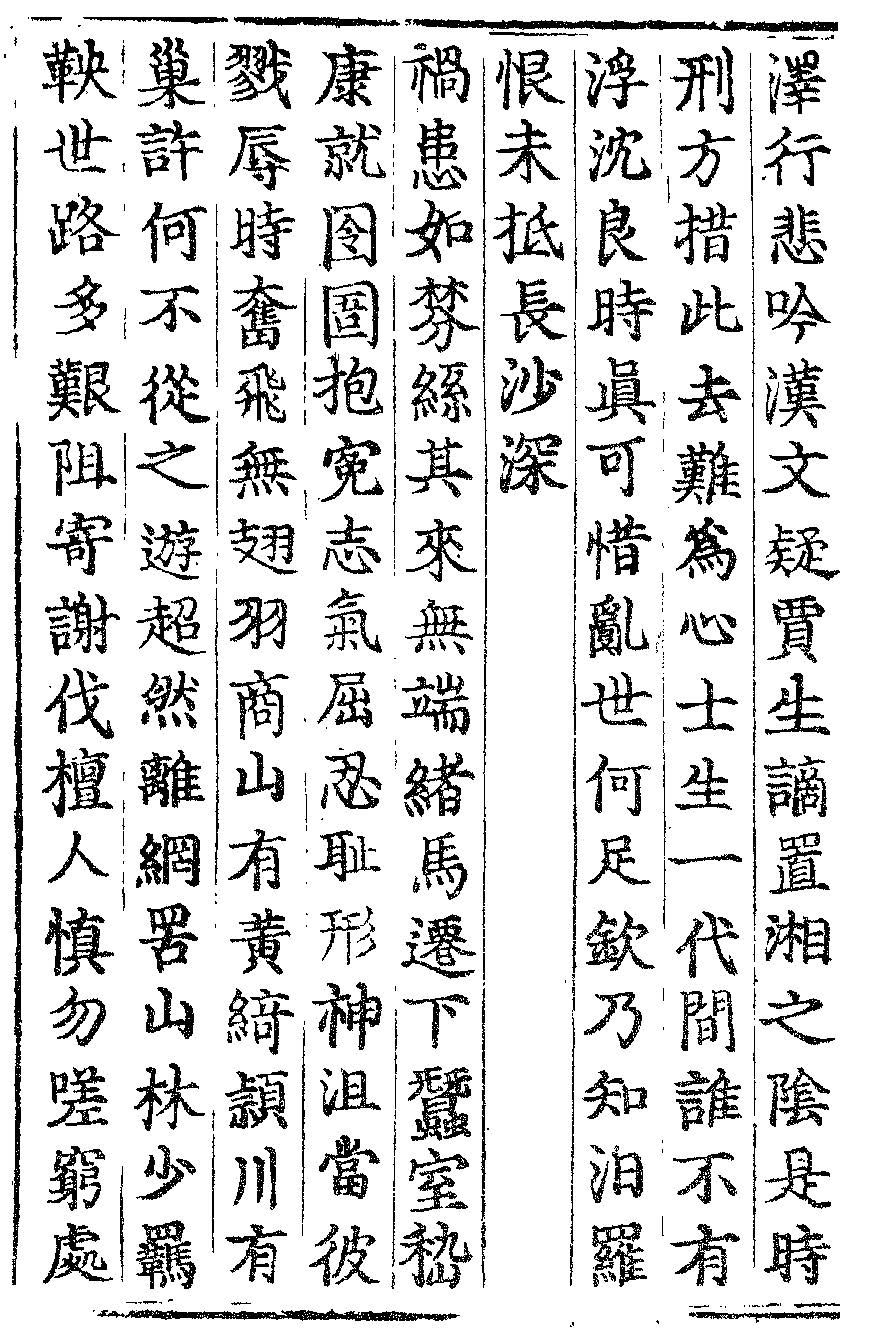 澤行悲吟漢文疑賈生謫置湘之陰是時
刑方措此去難為心士生一代間誰不有
浮沈良時眞可惜亂世何足欽乃知汨羅
恨未抵長沙深
禍患如棼絲其來無端緒馬遷下蠶室嵇
康就囹圄抱寃志氣屈忍耻形神沮當彼
戮辱時奮飛無翅羽商山有黃綺潁川有
巢許何不從之遊超然離網罟山林少羈
鞅世路多艱阻寄謝伐檀人慎勿嗟窮處